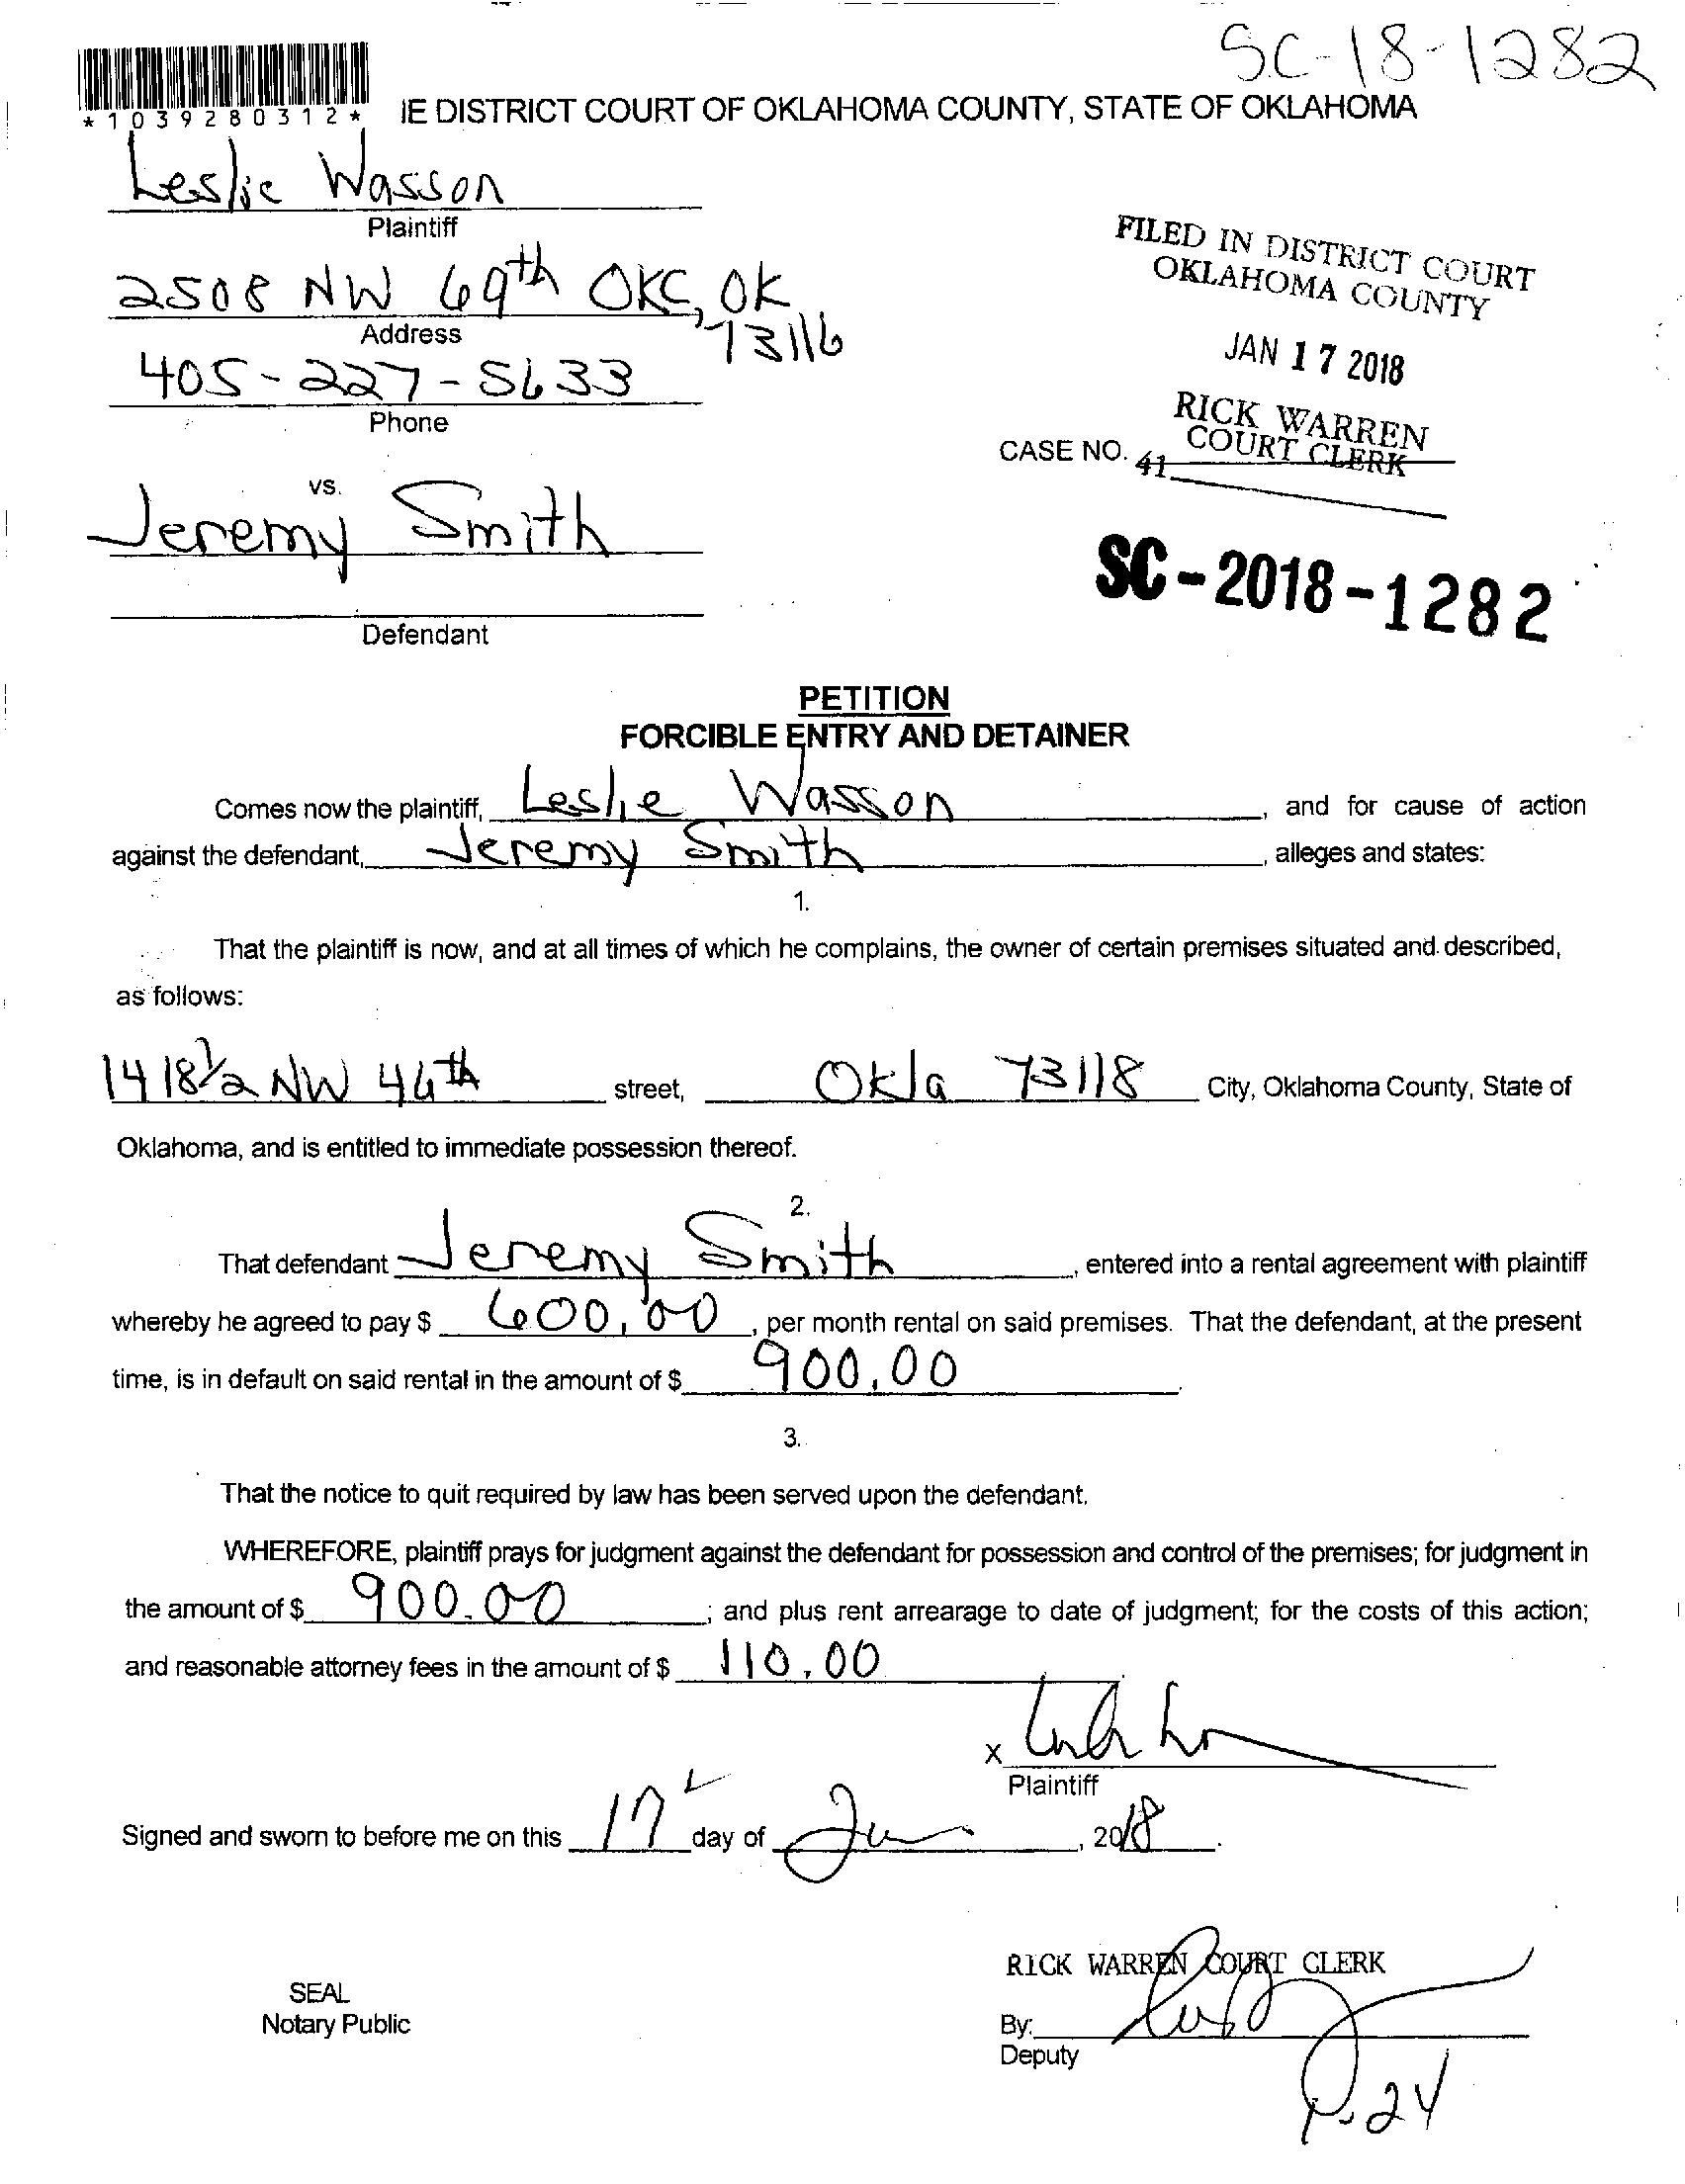 SC-18-1282
*1039280312*
IE DISTRICT COURT OF OKLAHOMA COUNTY, STATE OF OKLAHOMA
Leslie Wasson
Plaintiff
2508 NW 69th OKC, OK
73116
Address
405-227-5633
Phone
FILED IN DISTRICT COURT
OKLAHOMA COUNTY
JAN 17 2018
RICK WARREN
COURT CLERK
CASE NO. 41
vs.
Jeremy Smith
Defendant
SC-2018-1282
PETITION
FORCIBLE ENTRY AND DETAINER
Comes now the plaintiff, Leslie Wasson, and for cause of action
against the defendant, Jeremy Smith, alleges and states:
1.
That the plaintiff is now, and at all times of which he complains, the owner of certain premises situated and described,
as follows:
1418 1/2 NW 46th street, Okla 73118 City, Oklahoma County, State of
Oklahoma, and is entitled to immediate possession thereof.
2.
That defendant Jeremy Smith, entered into a rental agreement with plaintiff
whereby he agreed to pay $ 600.00, per month rental on said premises. That the defendant, at the present
time, is in default on said rental in the amount of $ 900.00.
3.
That the notice to quit required by law has been served upon the defendant.
WHEREFORE, plaintiff prays for judgment against the defendant for possession and control of the premises; for judgment in
the amount of $ 900.00; and plus rent arrearage to date of judgment; for the costs of this action;
and reasonable attorney fees in the amount of $ 110.00
x
Plaintiff
Signed and sworn to before me on this 17 day of Jan, 2018.
RICK WARREN COURT CLERK
SEAL
Notary Public
By:
Deputy
24